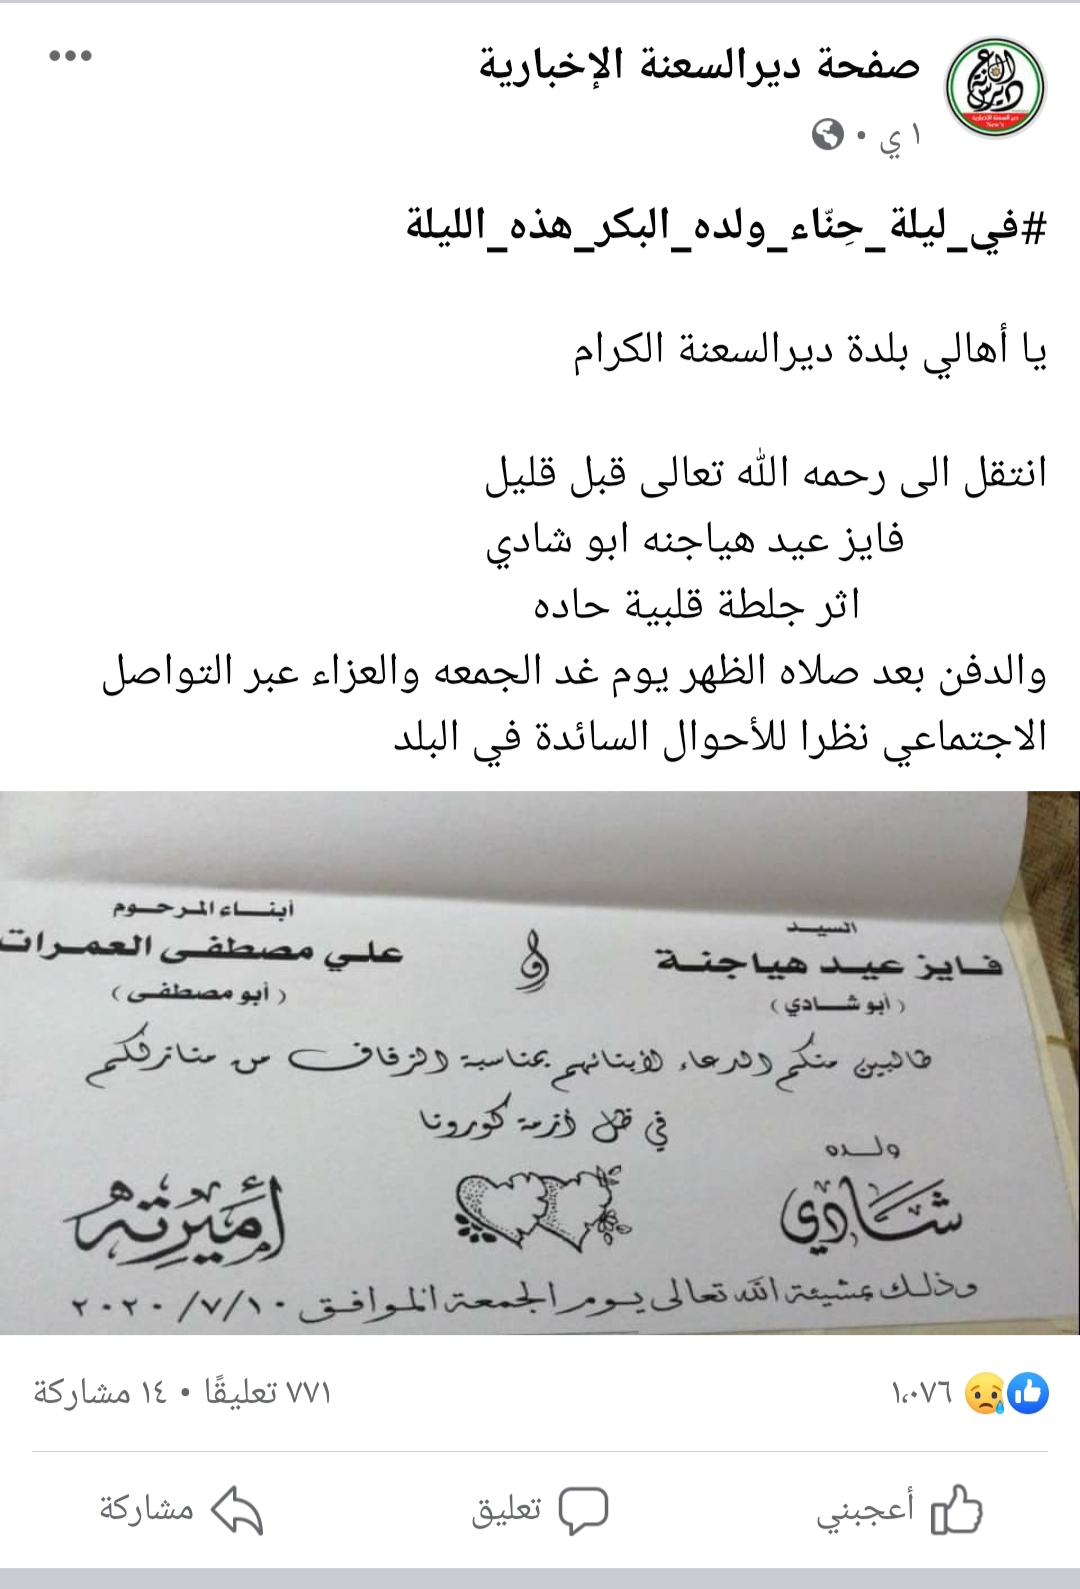 صفحة ديرالسعنة الإخبارية
١ ي
#في_ليلة_حِنّاء_ولده_البكر_هذه_الليلة
يا أهالي بلدة ديرالسعنة الكرام
انتقل الى رحمه الله تعالى قبل قليل
فايز عيد هياجنه ابو شادي
اثر جلطة قلبية حاده
والدفن بعد صلاه الظهر يوم غد الجمعه والعزاء عبر التواصل
الاجتماعي نظرا للأحوال السائدة في البلد
السيد
فايز عيد هياجنة
(أبو شادي)
و
أبناء المرحوم
علي مصطفى العمرات
(أبو مصطفى)
طالبين منكم الدعاء لأبنائهم بمناسبة الزفاف من منازلكم
في ظل أزمة كورونا
ولده
شادي
أميرته
وذلك بمشيئة الله تعالى يوم الجمعة الموافق ٢٠٢٠/٧/١٠
١٬٠٧٦
٧٧١ تعليقًا • ١٤ مشاركة
أعجبني
تعليق
مشاركة